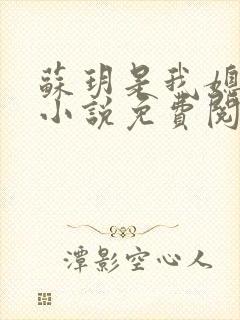 蘇玥是我媳
小說免費閱
潭影空心人